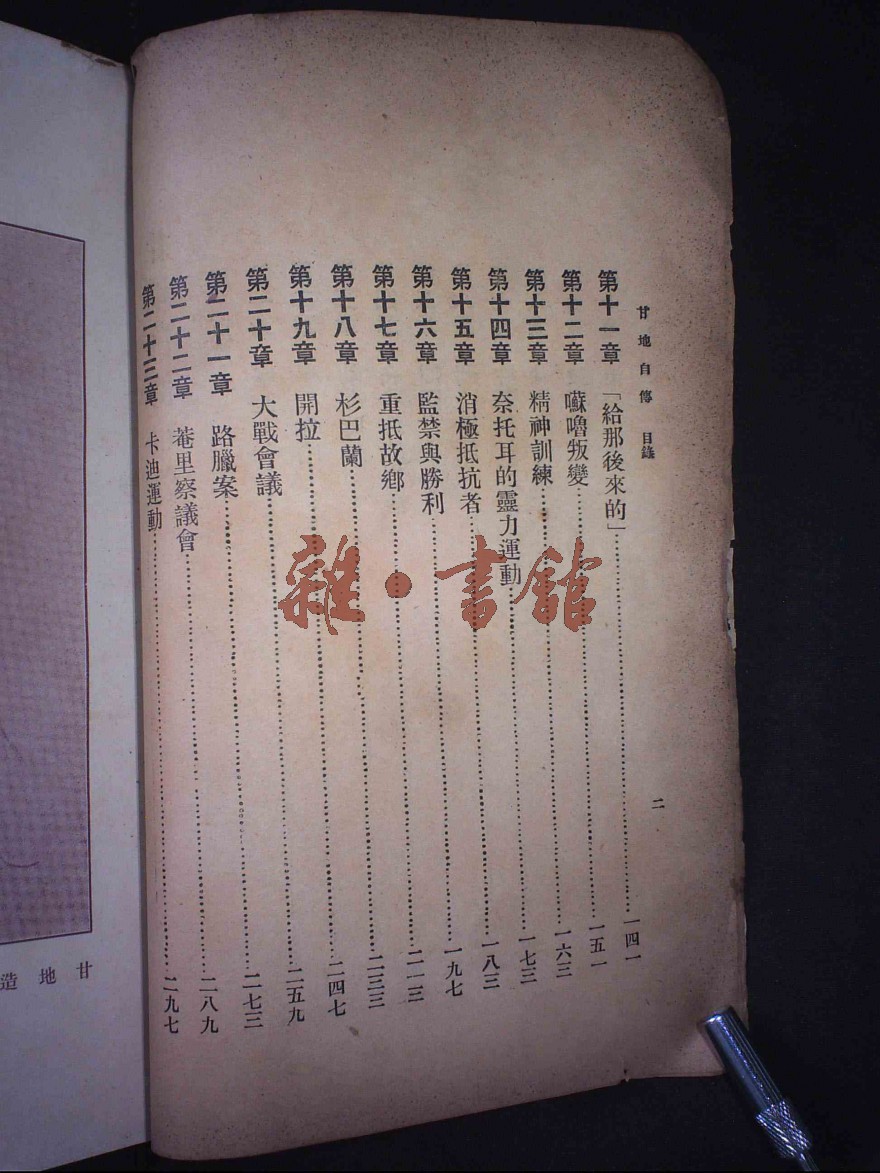 甘地自傳 目錄
二
第十一章 「給那後來的」 一四一
第十二章 囌嚕叛變 一五一
第十三章 精神訓練 一六三
第十四章 奈托耳的靈力運動 一七三
第十五章 消極抵抗者 一八三
第十六章 監禁與勝利 一九七
第十七章 重抵故鄉 二一三
第十八章 杉巴蘭 二三三
第十九章 開拉 二四七
第二十章 大戰會議 二五九
第二十一章 路臘案 二七三
第二十二章 菴里察議會 二八九
第二十三章 卡迪運動 二九七
甘地造
雜·書館